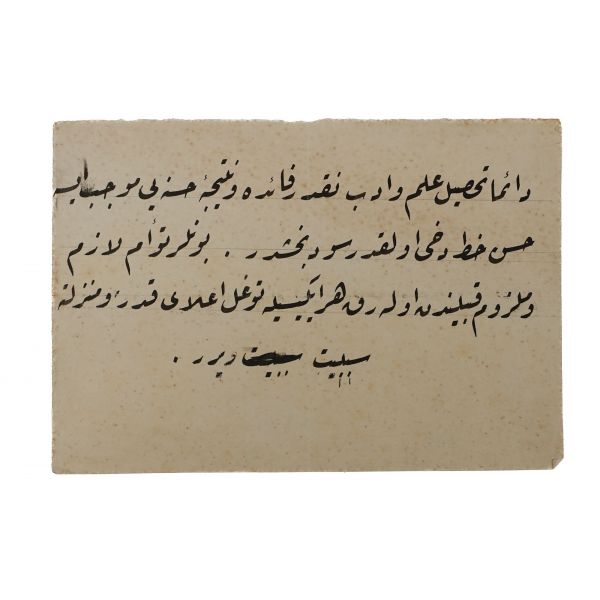 دائما تحصيل علم و ادب نقدر فائده و نتيجۀ حسنه يى موجب ايسه
حسن خط دخى اولقدر سودبخشدر . بونلر توأم لازم
و ملزوم قبيلندن اوله رق هر ايكيسيله توغل اعلاى قدر و منزلته
سببيت ويرر .